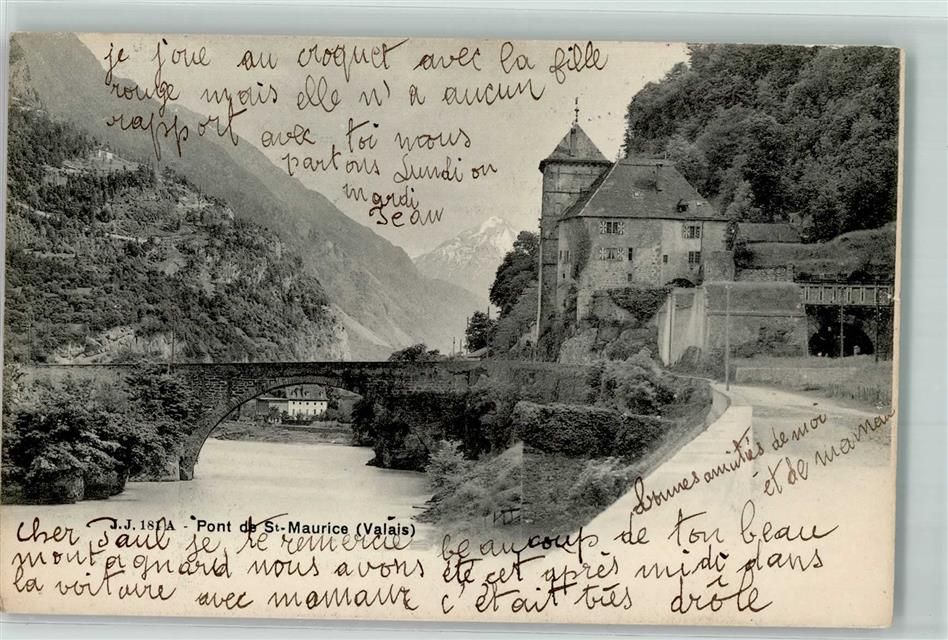 je joue au croquet avec la fille
rouge mais elle n'a aucun
rapport avec toi nous
partons Lundi ou
mardi
Jean
Bonnes amitiés de moi
et de maman
J.J. 181A - Pont de St-Maurice (Valais)
Cher Paul je te remercie beaucoup de ton beau
montagnard nous avons été cet après midi dans
la voiture avec maman c'était très drôle